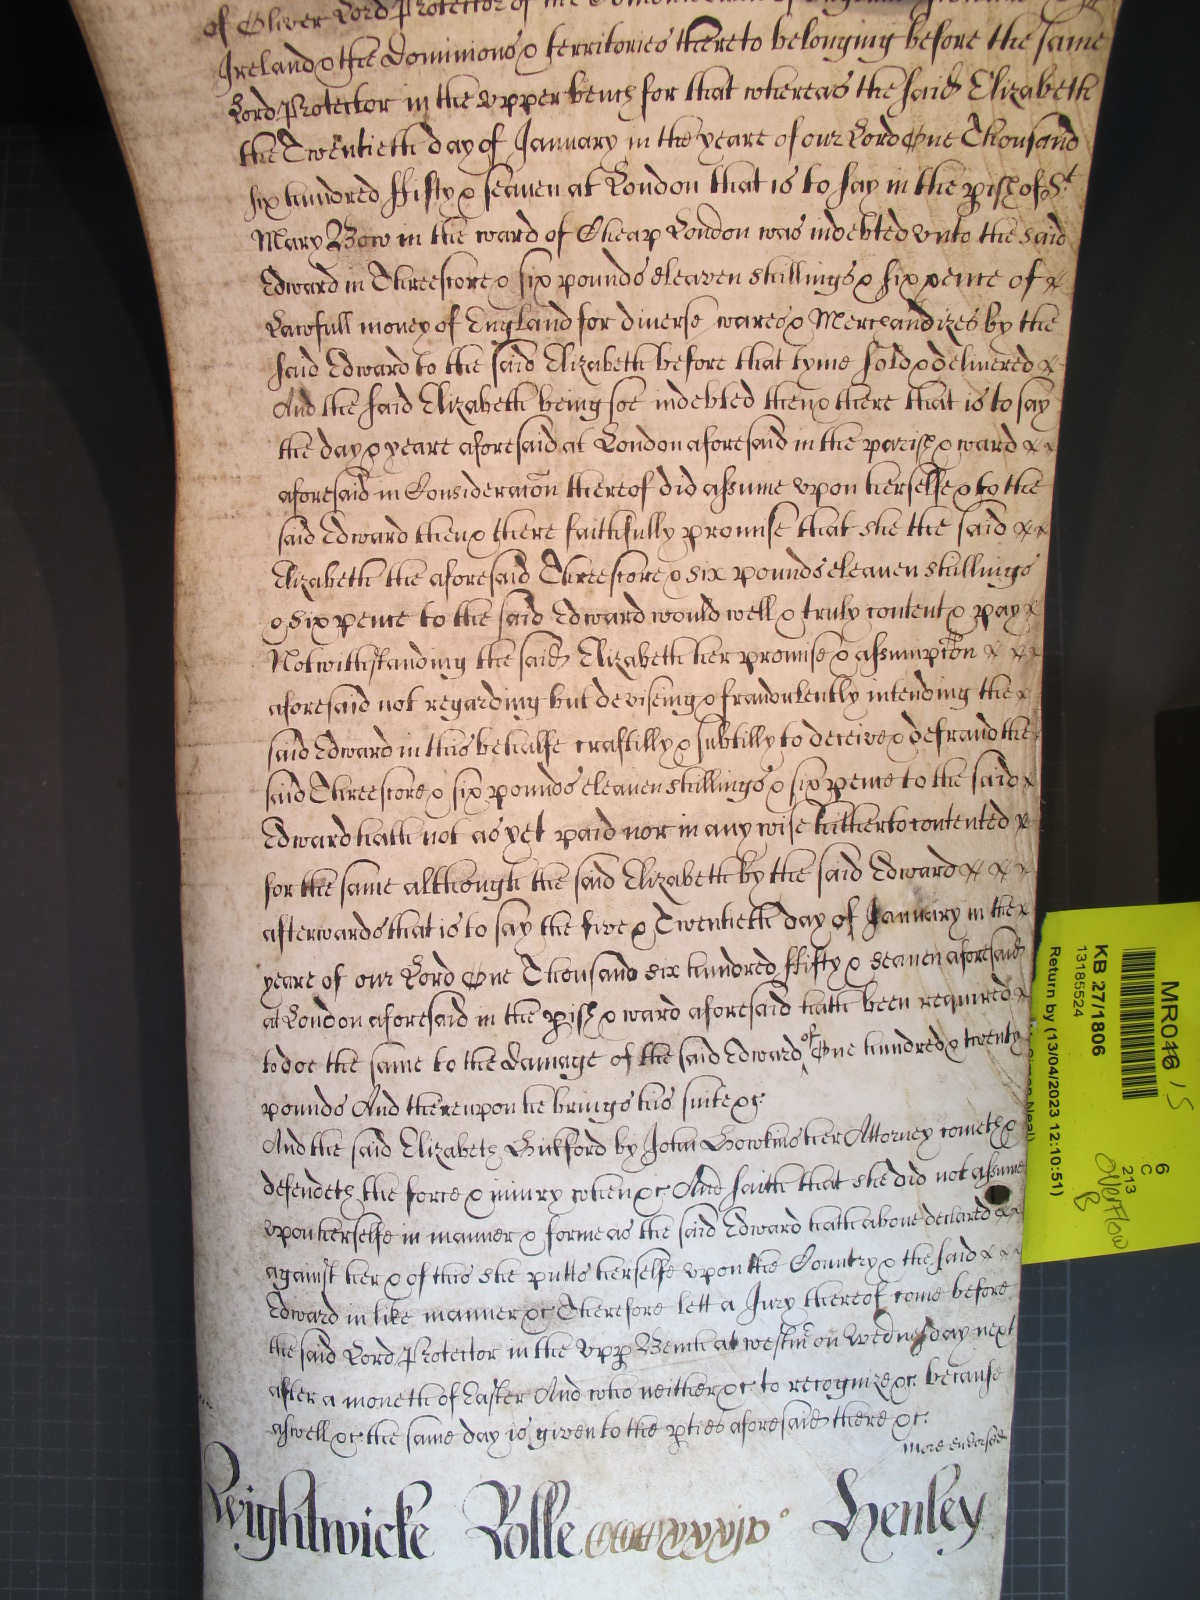 of Oliver Lord Protector of the Comonwealth of England
Ireland & the Dominions & territories thereto belonging before the same
Lord Protector in the upper bench for that whereas the said Elizabeth
the Twentieth day of January in the yeare of our Lord One Thousand
six hundred ffifty & seaven at London that is to say in the pish of St
Mary Bow in the ward of Cheap London was indebted unto the said
Edward in Threescore & six pounds eleaven shillings & six pence of
Lawfull money of England for diverse wares & Merchandizes by the
said Edward to the said Elizabeth before that tyme sold & delivered
And the said Elizabeth being soe indebted then & there that is to say
the day & yeare aforesaid at London aforesaid in the parish & ward
aforesaid in Consideracon thereof did assume upon herselfe & to the
said Edward then & there faithfully promise that she the said
Elizabeth the aforesaid Threescore & six pounds eleaven shillings
& six pence to the said Edward would well & truly content & pay
Notwithstanding the said Elizabeth her promise & assumpcon
aforesaid not regarding but deviseing & fraudulently intending the
said Edward in this behalfe craftilly & subtilly to deceive & defraud the
said Threescore & six pounds eleaven shillings & six pence to the said
Edward hath not as yet paid nor in any wise hitherto contented
for the same although the said Elizabeth by the said Edward
afterwards that is to say the five & Twentieth day of January in the
yeare of our Lord One Thousand six hundred ffifty & seaven aforesaid
at London aforesaid in the pish & ward aforesaid hath been required
to doe the same to the damage of the said Edward of One hundred & twenty
pounds And thereupon he brings his suite &c
And the said Elizabeth Guldford by John Howkins her Attorney cometh &
defendeth the force & iniury when &c And saith that she did not assume
upon herselfe in manner & forme as the said Edward hath above declared
against her & of this she putts herselfe upon the Country & the said
Edward in like manner &c Therefore lett a Jury thereof come before
the said Lord Protector in the upp Bench at westm on Wednesday next
after a moneth of Easter And who neither &c to recognize &c because
aswell &c the same day is given to the pties aforesaid there &c
more endorsed
Wightwicke Rolle Henley
MR046 / 5
KB 27/1806
13185524
Return by (13/04/2023 12:10:51)
6
C
213
Overflow
B